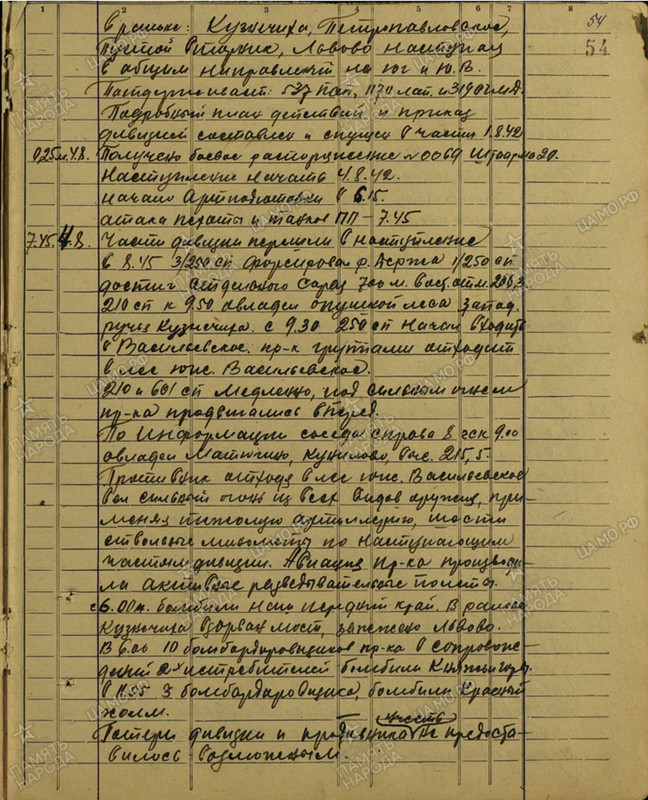 1 2 3 4 5 6 7 8
54
54
В районе: Кузнечиха, Петропавловское,
Пустой Вторник, Львово наступая
в общем направлении на юг и Ю.В.
Поддерживает: 537 пап, 1170 лап. и 319 ОГМД.
Подробный план действий и приказ
дивизией составлен и спущен в части 1.8.42
0.25 м. 4.8. Получено боевое распоряжение №0069 Штаарма 20.
Наступление начать 4.8.42.
Начало Артподготовки в 6.15.
атака пехоты и танков ПП – 7.45
7.45. 4.8. Части дивизии перешли в наступление
в 8.45 3/250 сп форсировал р. Держа 1/250 сп
достиг отдельного сарая 700 м. вост. отм.
210 сп к 9.50 овладел опушкой леса запад.
ручья Кузнечиха. с 9.30 250 сп начал входить
в Васильевское. пр-к группами отходит
в лес юж. Васильевское.
210 и 601 сп медленно, под сильным огнем
пр-ка продвигались вперед.
По информации соседа справа 8 гск 9.00
овладел Матюгино, Кучилово, выс. 215,5
Противник отходя в лес юж. Васильевское
вел сильный огонь из всех видов оружия, при-
меняя тяжолую артиллерию, шести
ствольные минометы по наступающим
частям дивизии. Авиация пр-ка производи-
ла активные разведывательные полеты.
с 6.00 бомбили наш передний край. В районе
Кузнечиха взорван мост, зажжено Львово.
В 6.00 10 бомбардировщиков пр-ка в сопровож-
дений 2х истребителей бомбили Княжьи горы
в 11.55 3 бомбардировщика, бомбили Красный
холм.
Потери дивизии и противника учесть не предоста-
вилось возможным.
ПАМЯТЬ НАРОДА
ЦАМО.РФ